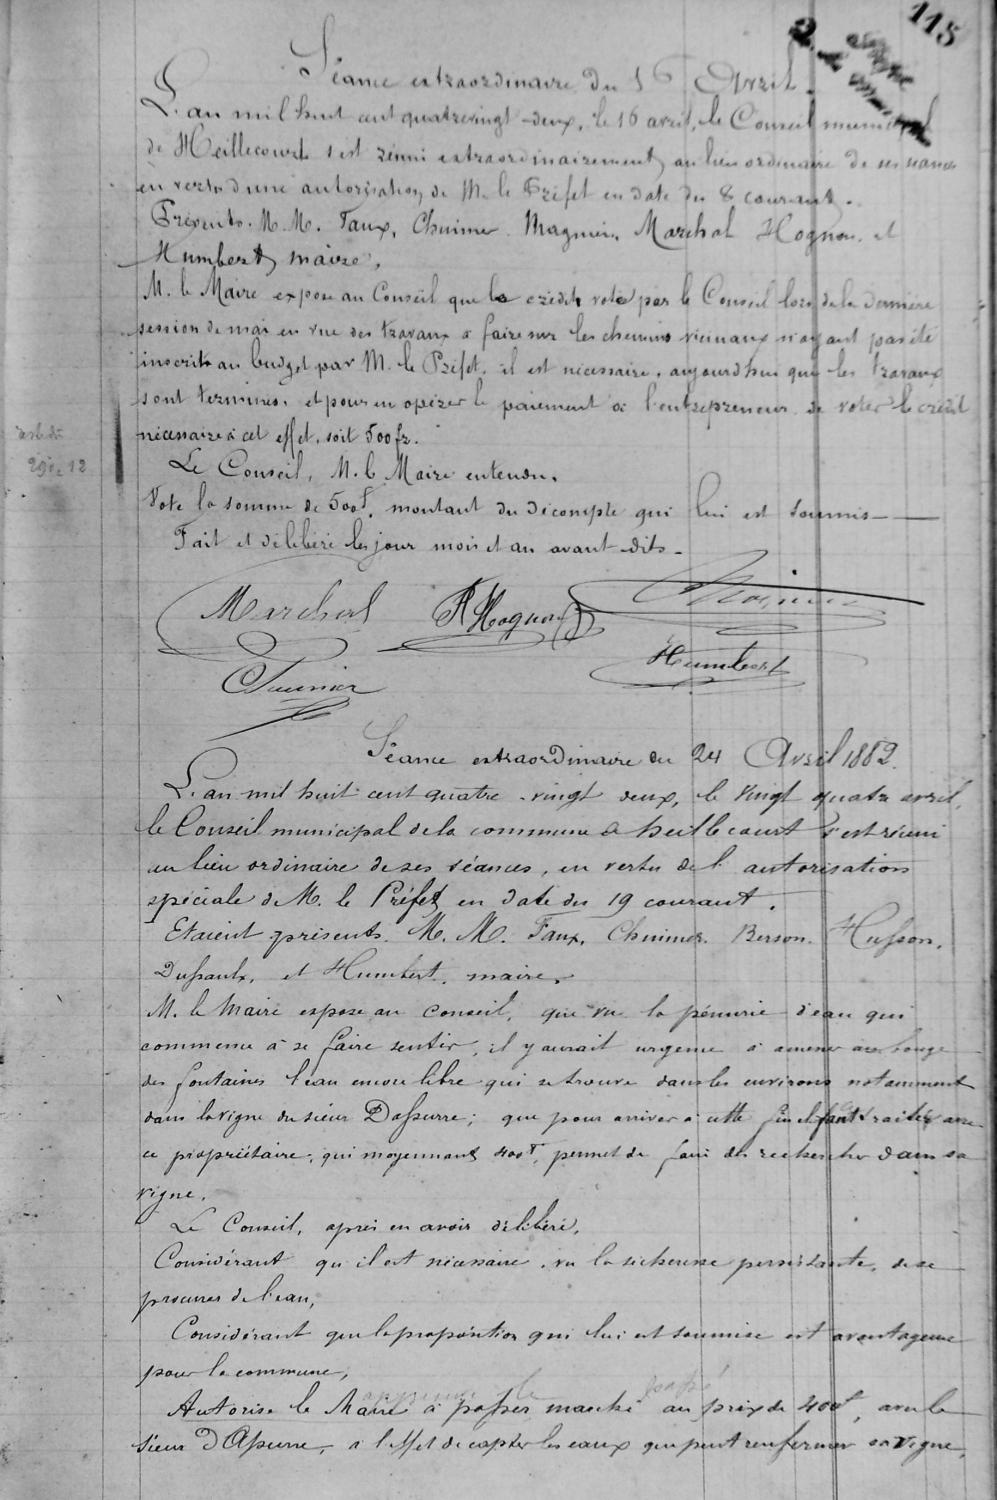 115
Séance extraordinaire du 16 Avril.
L'an mil huit cent quatrevingt-deux, le 16 avril, le Conseil municipal
de Heillecourt s'est réuni extraordinairement au lieu ordinaire de ses séances
en vertu d'une autorisation de M. le Préfet en date du 8 courant.
Présents. M. M. Faux, Chuimer. Magnier, Marchal Hognon. et
Humbert, maire.
M. le Maire expose au Conseil que le crédit voté par le Conseil lors de la dernière
session de mai en vue des travaux à faire sur les chemins vicinaux n'ayant pas été
inscrit au budget par M. le Préfet, il est nécessaire, aujourd'hui que les travaux
sont terminés, et pour en opérer le paiement à l'entrepreneur de voter le crédit
nécessaire à cet effet, soit 500 fr.
Le Conseil, M. le Maire entendu,
Vote la somme de 500f, montant du décompte qui lui est soumis —
Fait et délibéré les jour mois et an avant-dits -
Marchal Hognon
Humbert
Séance extraordinaire du 24 Avril 1882.
L'an mil huit cent quatre-vingt deux, le vingt quatre avril,
le Conseil municipal de la commune de heillecourt s'est réuni
au lieu ordinaire de ses séances, en vertu de l'autorisation
spéciale de M. le Préfet en date du 19 courant.
Etaient présents. M. M. Faux, Chuimer. Berson. Husson,
Dussaulx, et Humbert, maire.
M. le Maire expose au Conseil, que vu la pénurie d'eau qui
commence à se faire sentir, il y aurait urgence à amener
des fontaines l'eau encore libre qui se trouve dans les environs notamment
dans la vigne du sieur Dapurre; que pour arriver à cette fin il faut traiter avec
ce propriétaire, qui moyennant 400f, permet de faire des recherches dans sa
vigne.
Le Conseil, après en avoir délibéré,
Considérant qu'il est nécessaire, vu la sécheresse persistante, de se
procurer de l'eau,
Considérant que la proposition qui lui est soumise est avantageuse
pour la commune,
Autorise le Maire à passer marché au prix de 400f, avec le
Sieur D'Apurre, à l'effet de capter les eaux que peut renfermer sa vigne,